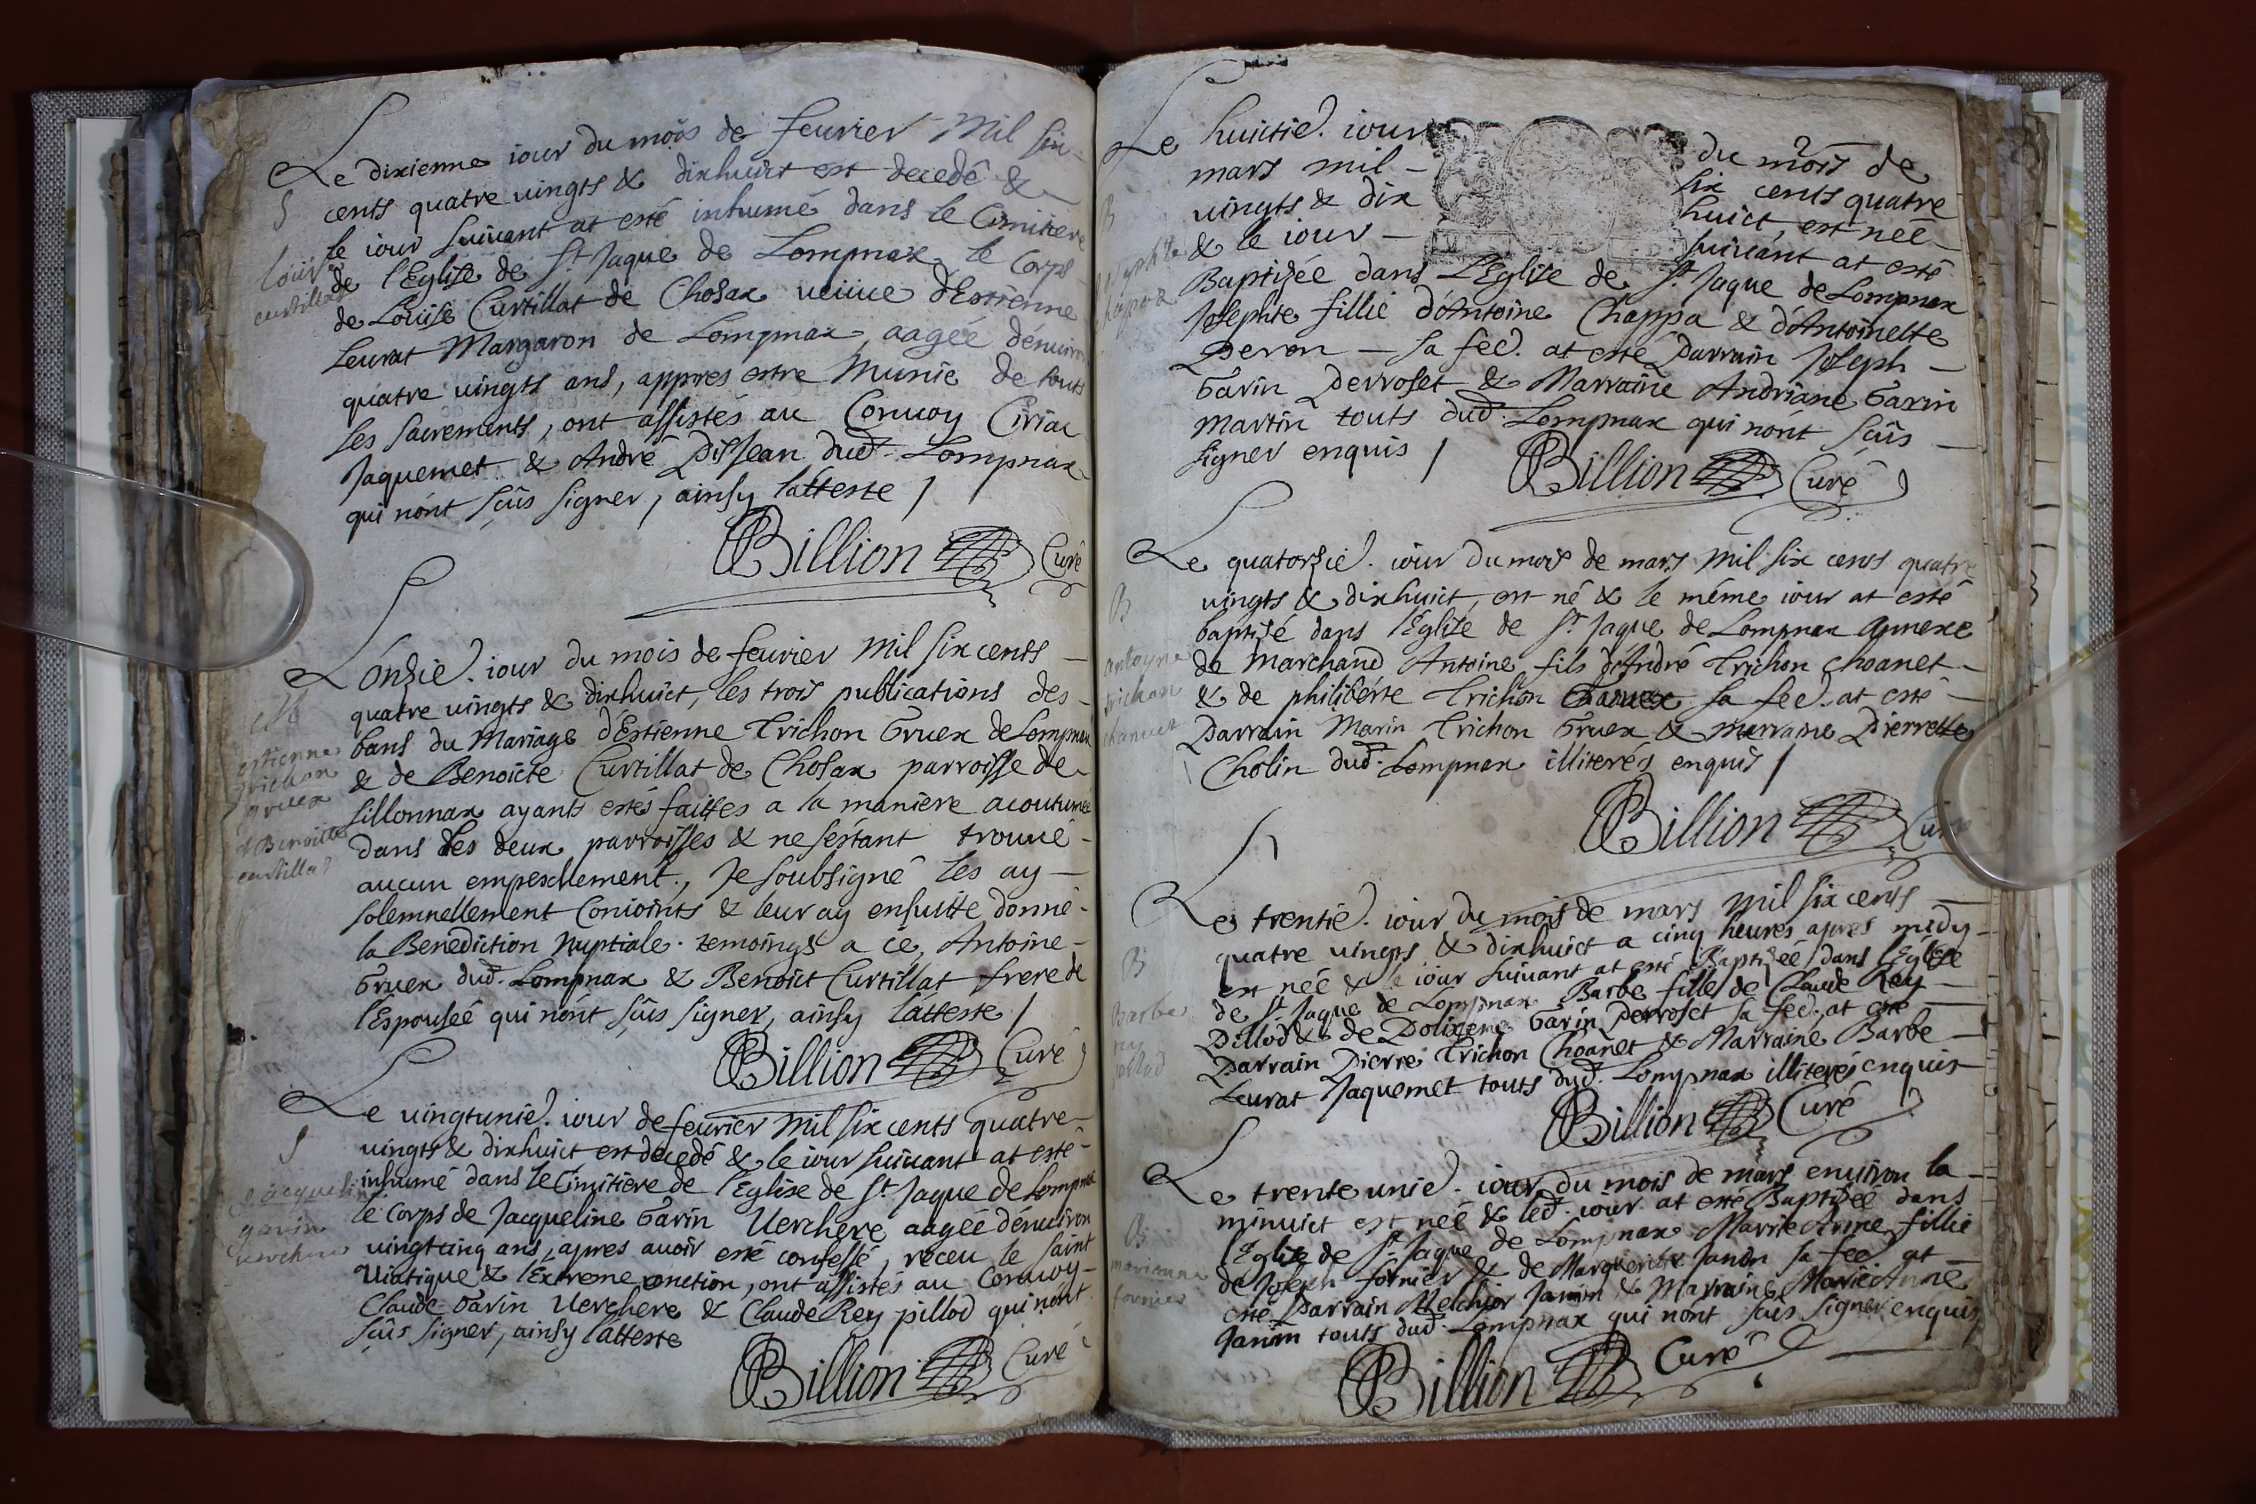 Le dixienne iour du mois de feurier Mil six
cents quatre vingts & dixhuict est decedê &
le iour suiuant at esté inhumé dans le Cimitiere
de l'Eglise de St Jaque de Lompnax le Corps
de Loüise Curtillat de Chosax ueuue d'Estienne
Leurat Margaron de Lompnax, aagée d'énuiron
quatre vingts ans, appres estre Munie de touts
les sacrements, ont assistés au Conuoy Ciriac
Jaquemet & André Dissean dud. Lompnax
qui n'ont sçûs signer, ainsy l'atteste /
Billion Curé
S
Louise
curtillat
L'onzie. iour du mois de feurier Mil six cents
quatre uingts & dixhuict, les trois publications des
bans du Mariage d'Estienne Trichon Gruex de Lompnax
& de Benoicte Curtillat de Chosax parroisse de
sillonnax ayants estés faittes a la maniere acoutumée
dans les deux parroisses & ne s'estant trouué
aucun empeschement, Je soubsigné les ay
solemnellement Conioints & leur ay ensuitte donné
la Benediction Nuptiale. temoings a ce, Antoine
Gruex dud. Lompnax & Benoict Curtillat frere de
l'Espousée qui n'ont sçûs signer, ainsy l'atteste /
Billion Curé
estienne
trichon
gruex
et Benoitte
curtillat
Le uingtunie. iour de feurier Mil six cents quatre
vingts & dixhuict est decedé & le iour suiuant at esté
inhumé dans le Cimitiere de l'Eglise de St Jaque de Lompnax
le Corps de Jacqueline Garin Uerchere aagée d'énuiron
uingtcinq ans, apres auoir esté confessé, réceu le saint
Uiatique & l'Extreme onction, ont assistés au Conuoy
Claude Garin Uerchere & Claude Rey pillod qui n'ont
sçûs signer, ainsy l'atteste
Billion Curé
S
Jacqueline
garin
uerchere
Le huictie. iour du mois de
mars mil six cents quatre
uingts & dix huict, est née
& le iour suiuant at esté
Baptizée dans l'Eglise de St Jaque de Lompnax
Josephte fillie d'Antoine Chappa & d'Antoinette
Peron sa fée. at esté Parrain Joseph
Garin Perroset & Marraine Andriane Garin
Martin touts dud. Lompnax qui n'ont sçûs
signer enquis /
Billion Curé
B
Le quatorzie. iour du mois de mars Mil six cents quatre
vingts & dixhuict, est né & le méme iour at esté
baptizé dans l'Eglise de St Jaque de Lompnax Annexe
de Marchand Antoine fils d'André Trichon Choanet
& de philibérte Trichon sa fée. at esté
Parrain Marin Trichon Gruex & marraine Pierrette
Cholin dud. Lompnax illiterés enquis /
Billion Curé
B
antoyne
trichon
chanuet
Le trentie. iour du mois de mars Mil six cents
quatre uingts & dixhuict a cinq heures apres midy
est née & le iour suiuant at esté Baptizée dans l'Église
de St Jaque de Lompnax Barbe fille de Claude Rey
Pillod & de Polixene Garin Perroset sa fée. at esté
Parrain Pierre Trichon Choanet & Marraine Barbe
Leurat Jaquemet touts dud. Lompnax illiterés enquis
Billion Curé
B
Barbe
rey
pillod
Le trente unie. iour du mois de mars enuiron la
minuict est née & led. iour at esté Baptizée dans
l'Eglise de St Jaque de Lompnax Marie Anne fillie
de Joseph fornier & de Marguerite Janin sa fée at
esté Parrain Melchior Janin & Marraine Marie Anne
Janin touts dud. Lompnax qui n'ont sçus signer enquis
Billion Curé
B
marianne
fornier